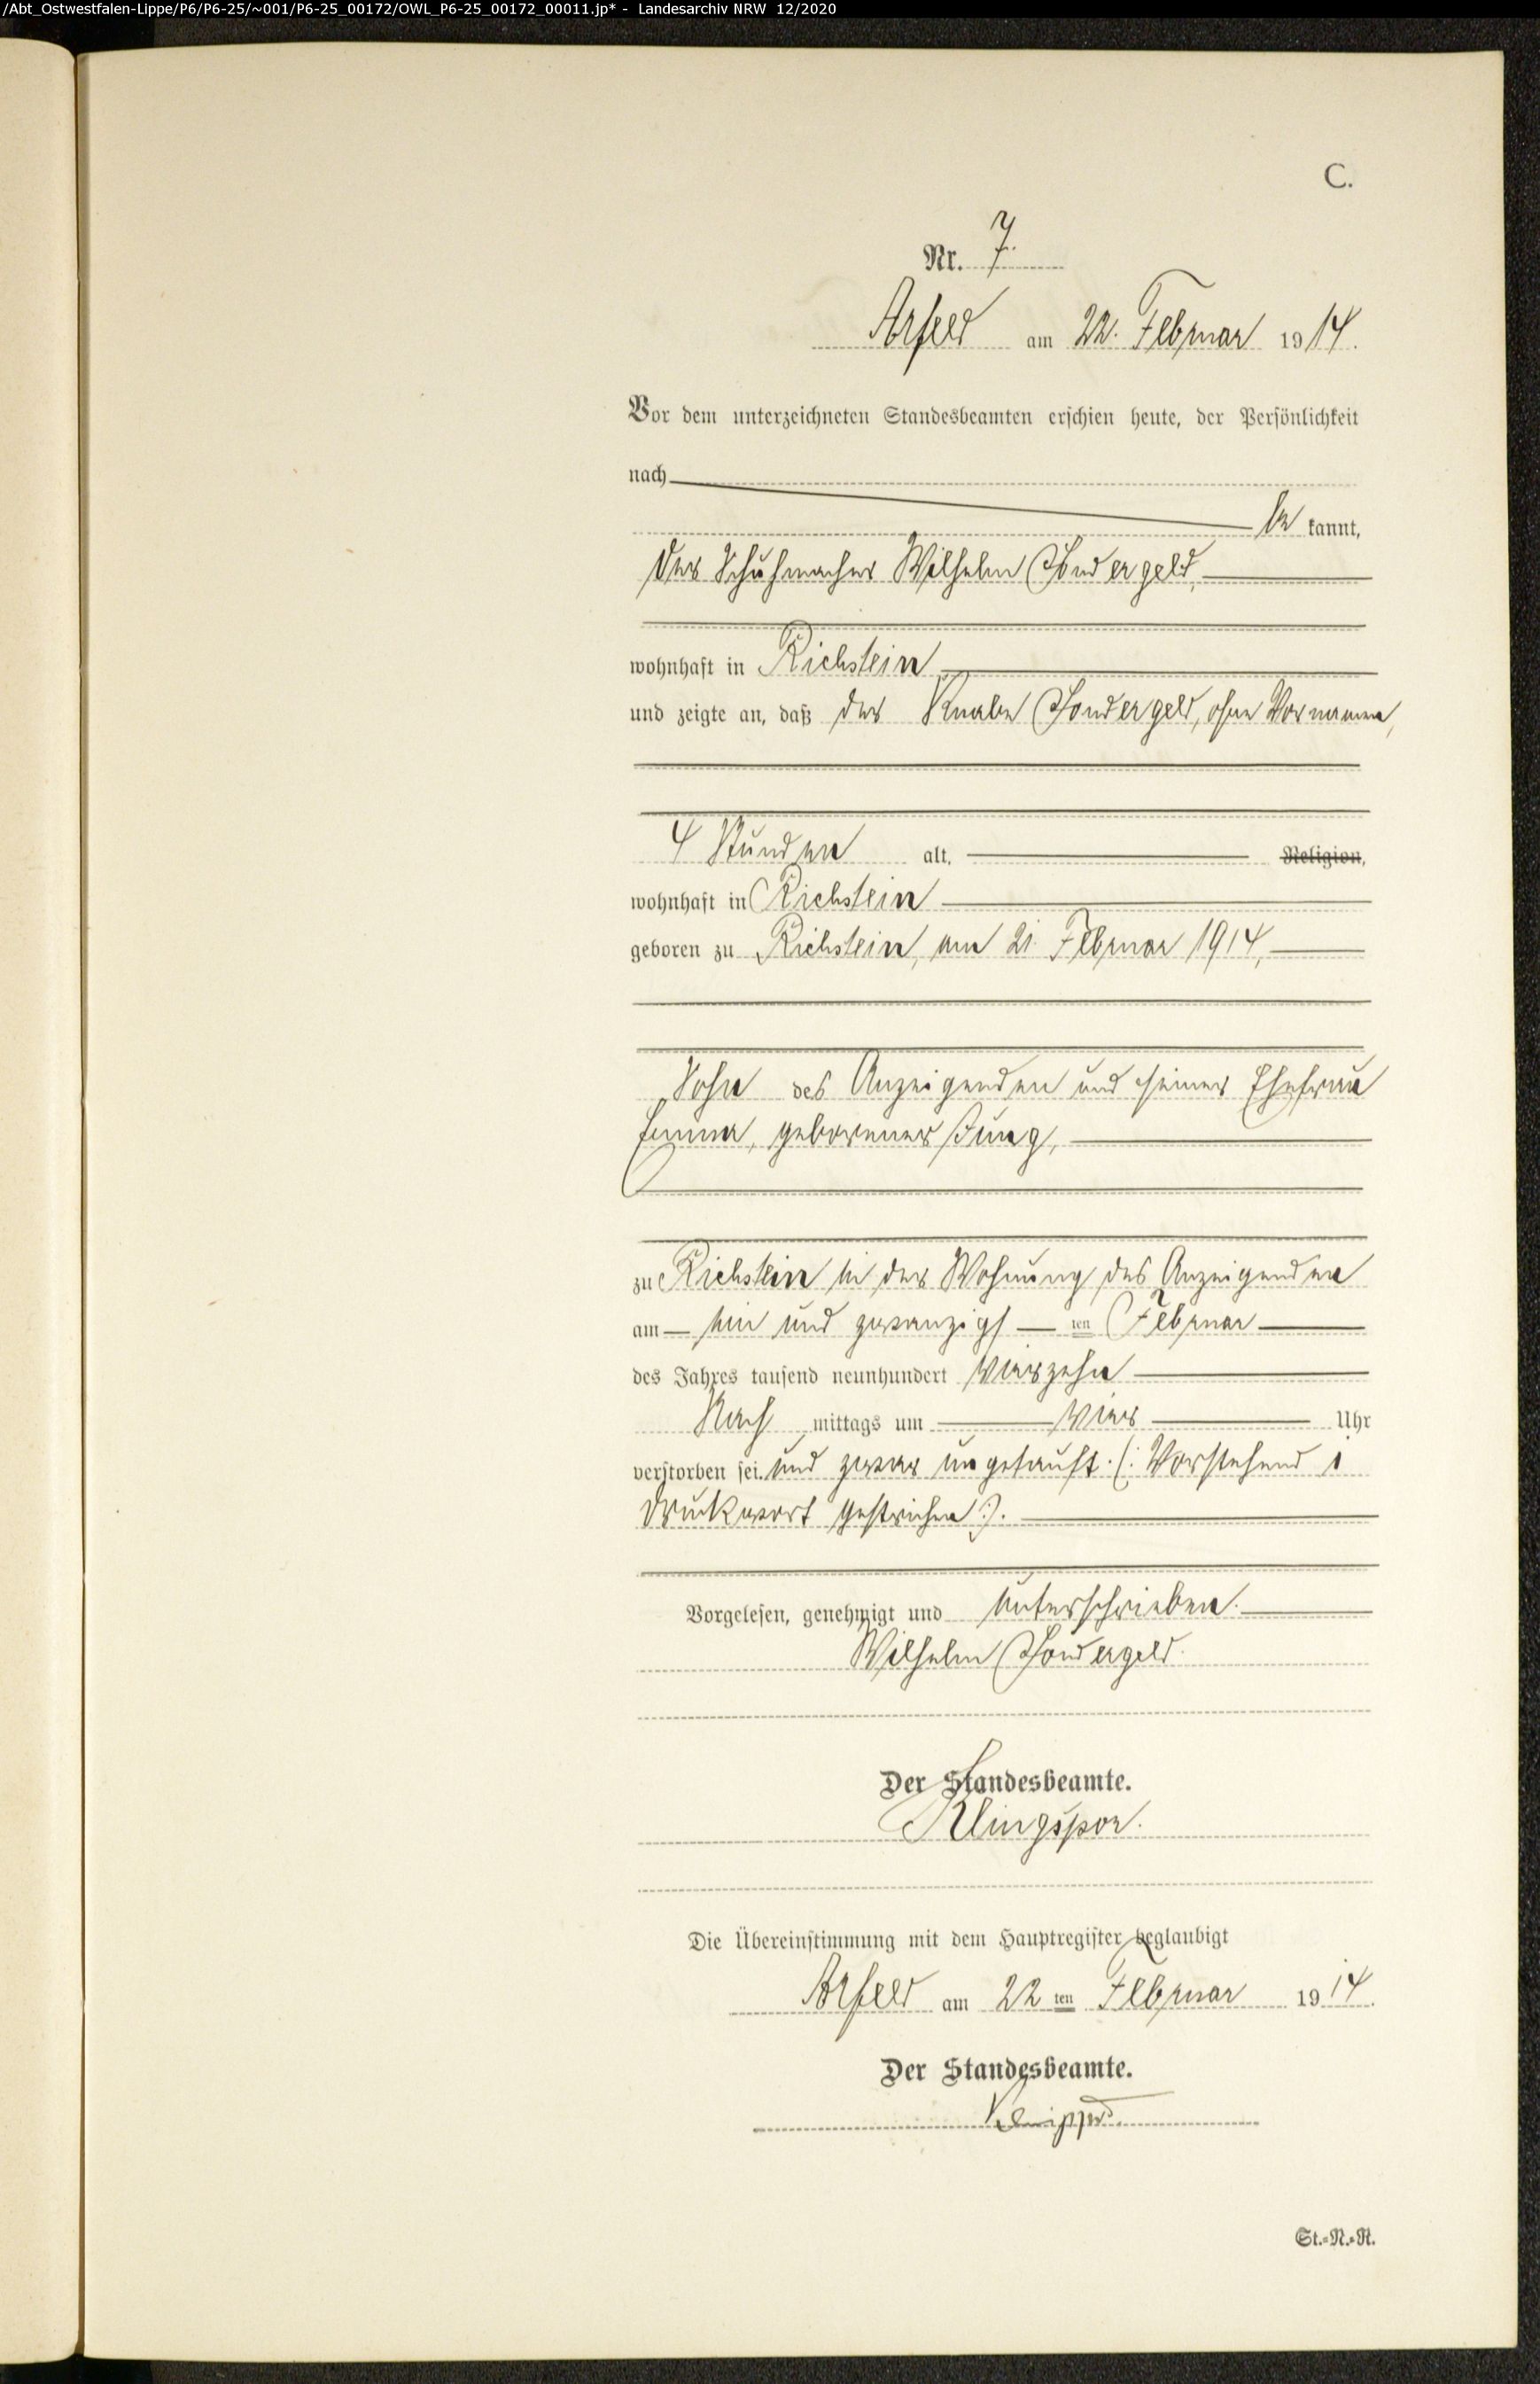 /Abt_Ostwestfalen-Lippe/P6/P6-25/~001/P6-25_00172/OWL_P6-25_00172_00011.jp* - Landesarchiv NRW 12/2020
C.
Nr. 7.
Arfeld am 22. Februar 1914.
Vor dem unterzeichneten Standesbeamten erschien heute, der Persönlichkeit
nach
be kannt,
der Schuhmacher Wilhelm Sondergeld,
wohnhaft in Richstein
und zeigte an, daß der Knabe Sondergeld, ohne Vornamen,
4 Stunden alt, Religion,
wohnhaft in Richstein
geboren zu Richstein, am 21. Februar 1914,
Sohn des Anzeigenden und seiner Ehefrau
Emma, geborener Jung,
zu Richstein in der Wohnung des Anzeigenden
am ein und zwanzigs ten Februar
des Jahres tausend neunhundert vierzehn
Nach mittags um vier Uhr
verstorben sei. und zwar ungetauft. (: Vorstehend 1
Druckwort gestrichen :).
Vorgelesen, genehmigt und unterschrieben.
Wilhelm Sondergeld.
Der Standesbeamte.
Klingspor.
Die Übereinstimmung mit dem Hauptregister beglaubigt
Arfeld am 22 ten Februar 1914.
Der Standesbeamte.
St.-N.-R.